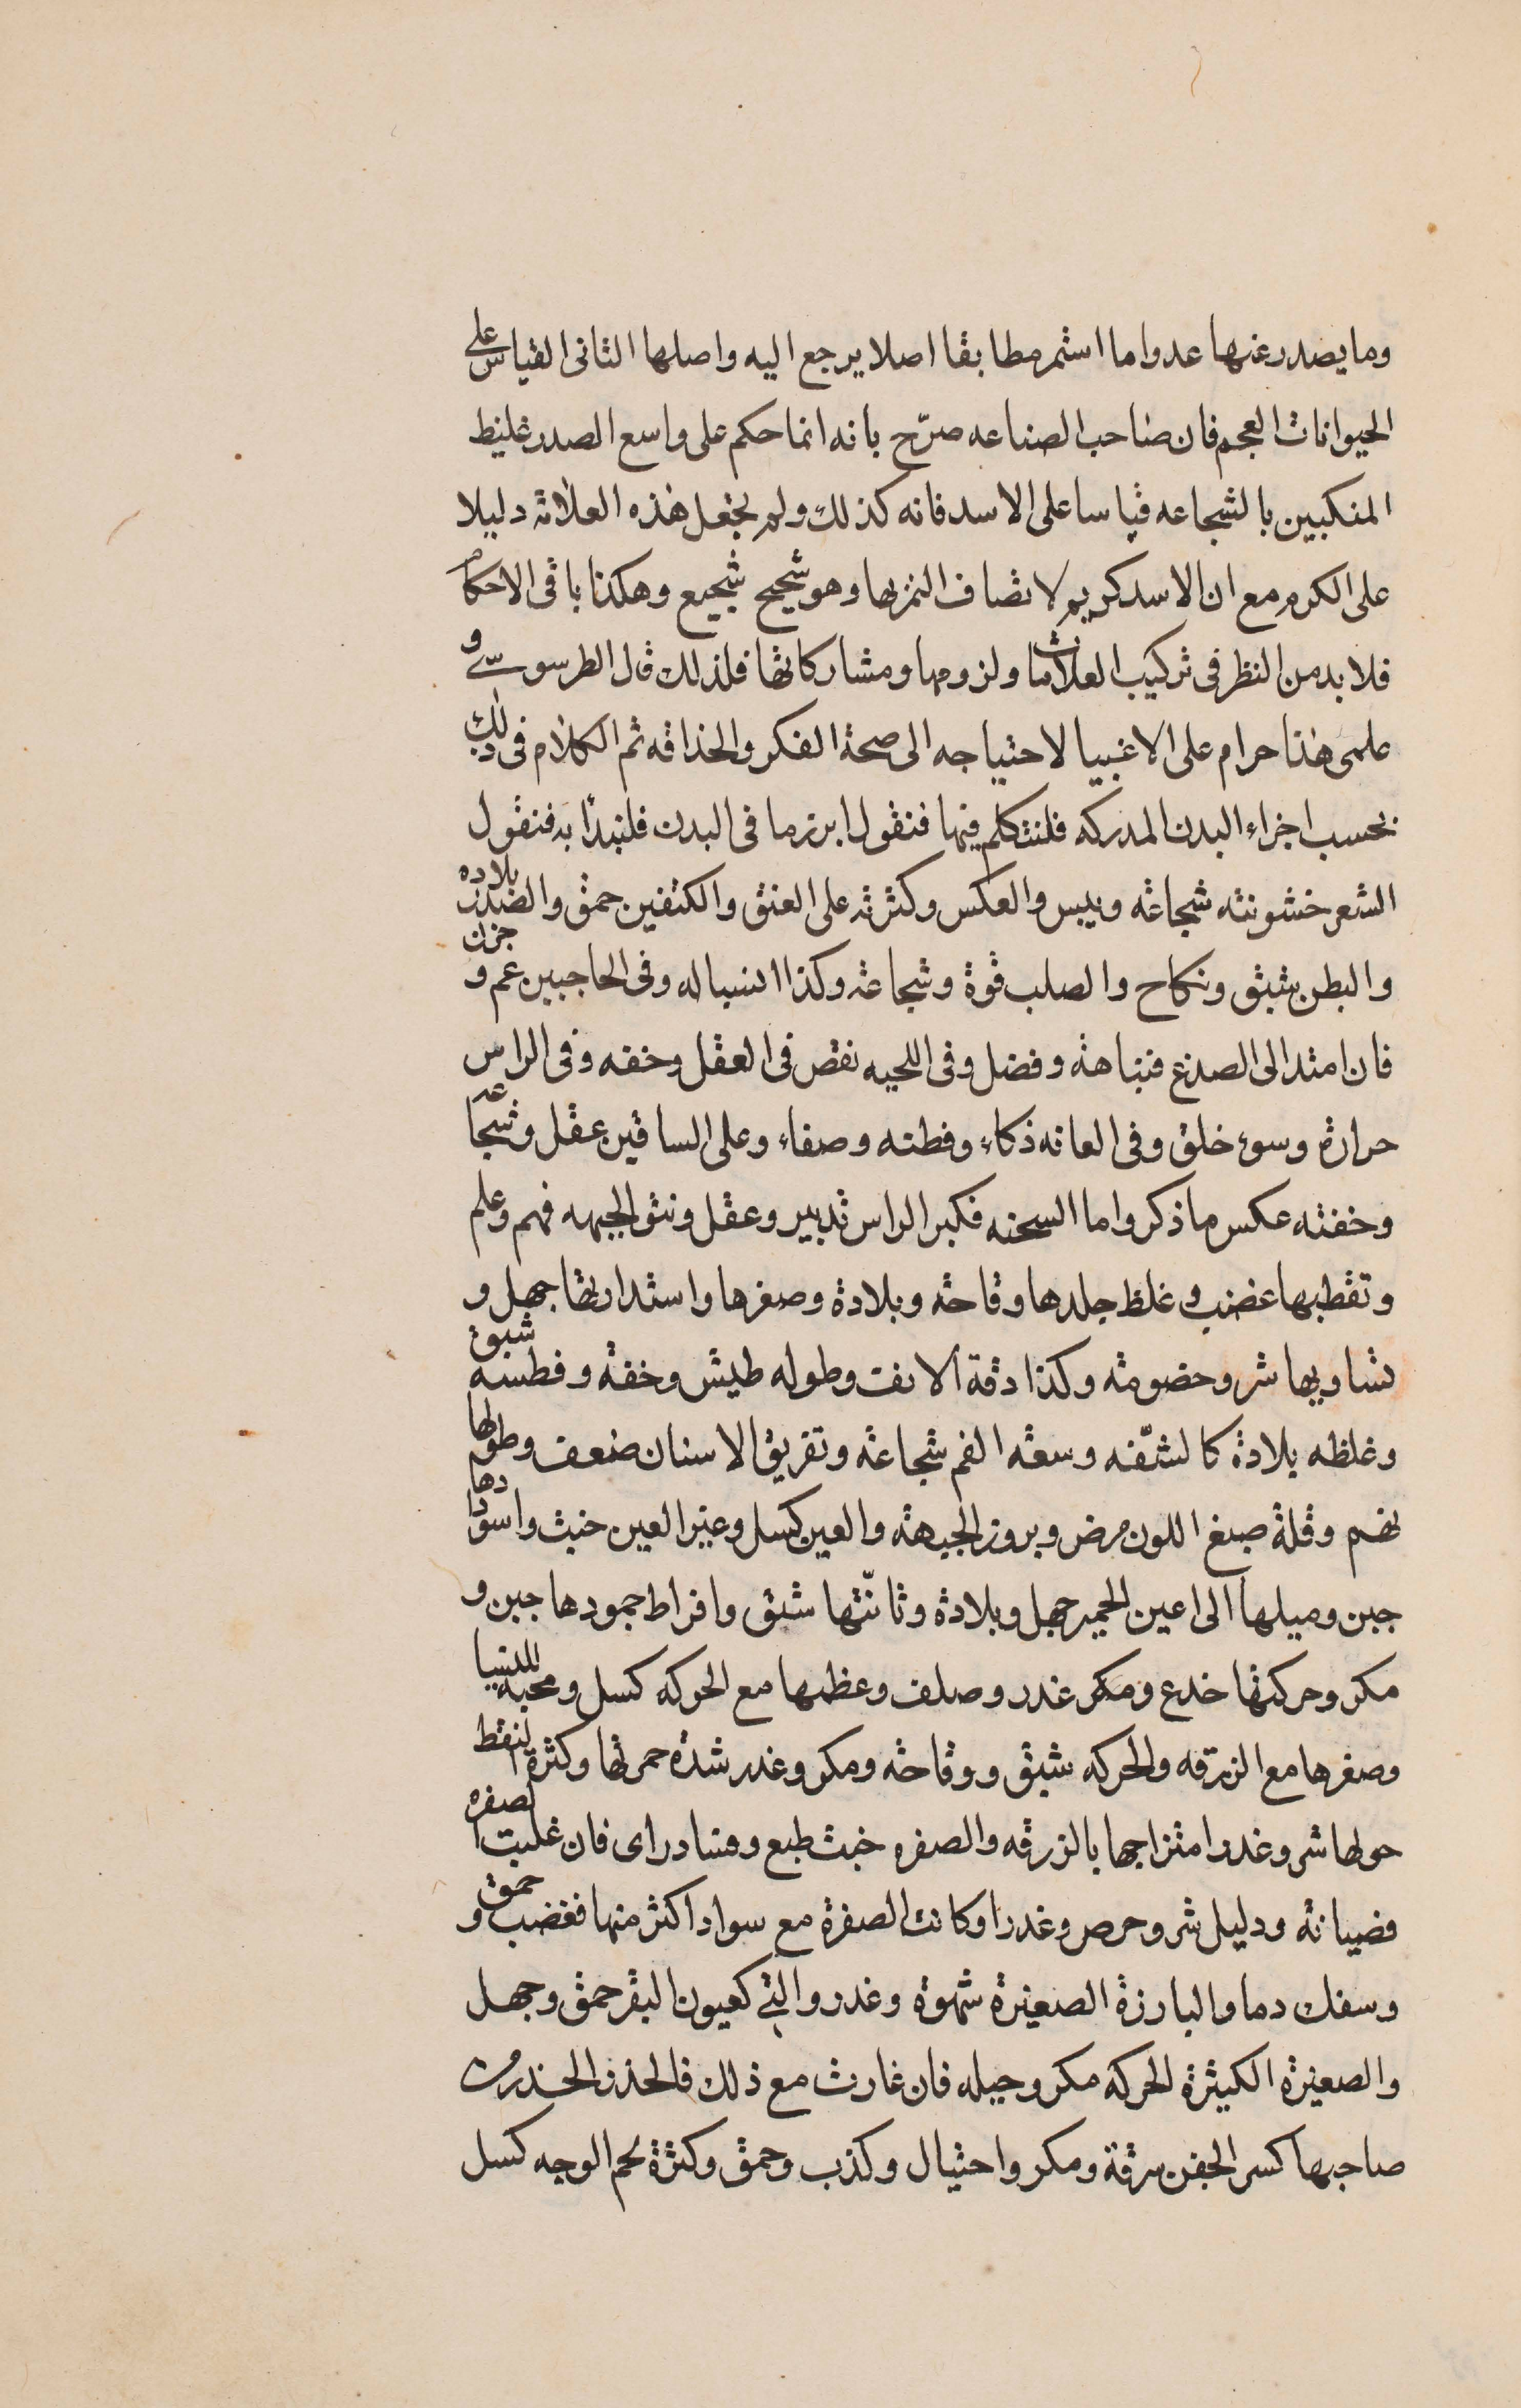 وما يصدر عنها عدوا ما استمر مطابقا اصلا يرجع اليه واصلها الثانى القياس على
الحيوانات العجم فان صاحب الصناعه صرّح بانه انما حكم على واسع الصدر غليظ
المنكبين بالشجاعه قياسا على الاسد فانه كذلك ولم يجعل هذه العلامة دليلا
على الكرم مع ان الاسد كريم لاتصاف النمر بها وهو شحيح شجيع وهكذا باقى الاحكام
فلا بد من النظر فى تركيب العلامات ولزومها ومشاركاتها فلذلك قال الطرسوسى و
علمى هذا حرام على الاغبيا لاحتياجه الى صحة الفكر والحذاقه ثم الكلام فى ذلك
بحسب اجزاء البدن المدركه فلنتكلم فيها فنقول ابرز ما فى البدن فلنبدأ به فنقول
الشعر خشونته شجاعة ويبس والعكس وكثرته على العنق والكتفين حمق والصدر بلاده
والبطن شبق ونكاح والصلب قوة وشجاعة وكذا انسباله وفى الحاجبين غم و حزن
فان امتد الى الصدغ فنباهة وفضل وفى اللحيه نقص فى العقل وخفه وفى الراس
حرارة وسوء خلق وفى العانه ذكاء وفطنه وصفاء وعلى الساقين عقل وشجاعه
وخفته عكس ما ذكر واما السحنه فكبر الراس تدبير وعقل ونتق الجبهه فهم وعلم
وتقطبها غضب وغلظ جلدها وقاحة وبلادة وصغرها واستدارتها جهل و
تساويها شر وخصومة وكذا دقة الانف وطوله طيش وخفة وفطسه شبق
وغلظه بلادة كالشفّه وسعة الفم شجاعة وتفريق الاسنان ضعف وطولها
نهم وقلة صبغ اللون مرض وبروز الجبهة والعين كسل وغير العين خبث واسودادها
جبن وميلها الى اعين الحمير جهل وبلادة وثانّثها شبق وافراط جمودها جبن و
مكر وحركتها خدع ومكر غدر وصلف وعظمها مع الحركه كسل ومحبه للدنيا
وصغرها مع الزرقه والحركه شبق ووقاحة ومكر وغدر شدة حمرتها وكثرة النقط
حولها شر وغدر امتزاجها بالزرقه والصفره خبث طبع وفساد راى فان غلبت الصفره
فضيانة ودليل شر وحرص وغدر اوكانت الصفرة مع سواد اكثر منها فغضب و حمق
وسفك دما والبارزة الصغيرة شهوة وغدر والتى كعيون البقر حمق وجهل
والصغيرة الكثيرة الحركه مكر وحيله فان غارت مع ذلك فالحذر الحذر من
صاحبها كسر الجفن سرقة ومكر واحتيال وكذب وحمق وكثرة لحم الوجه كسل